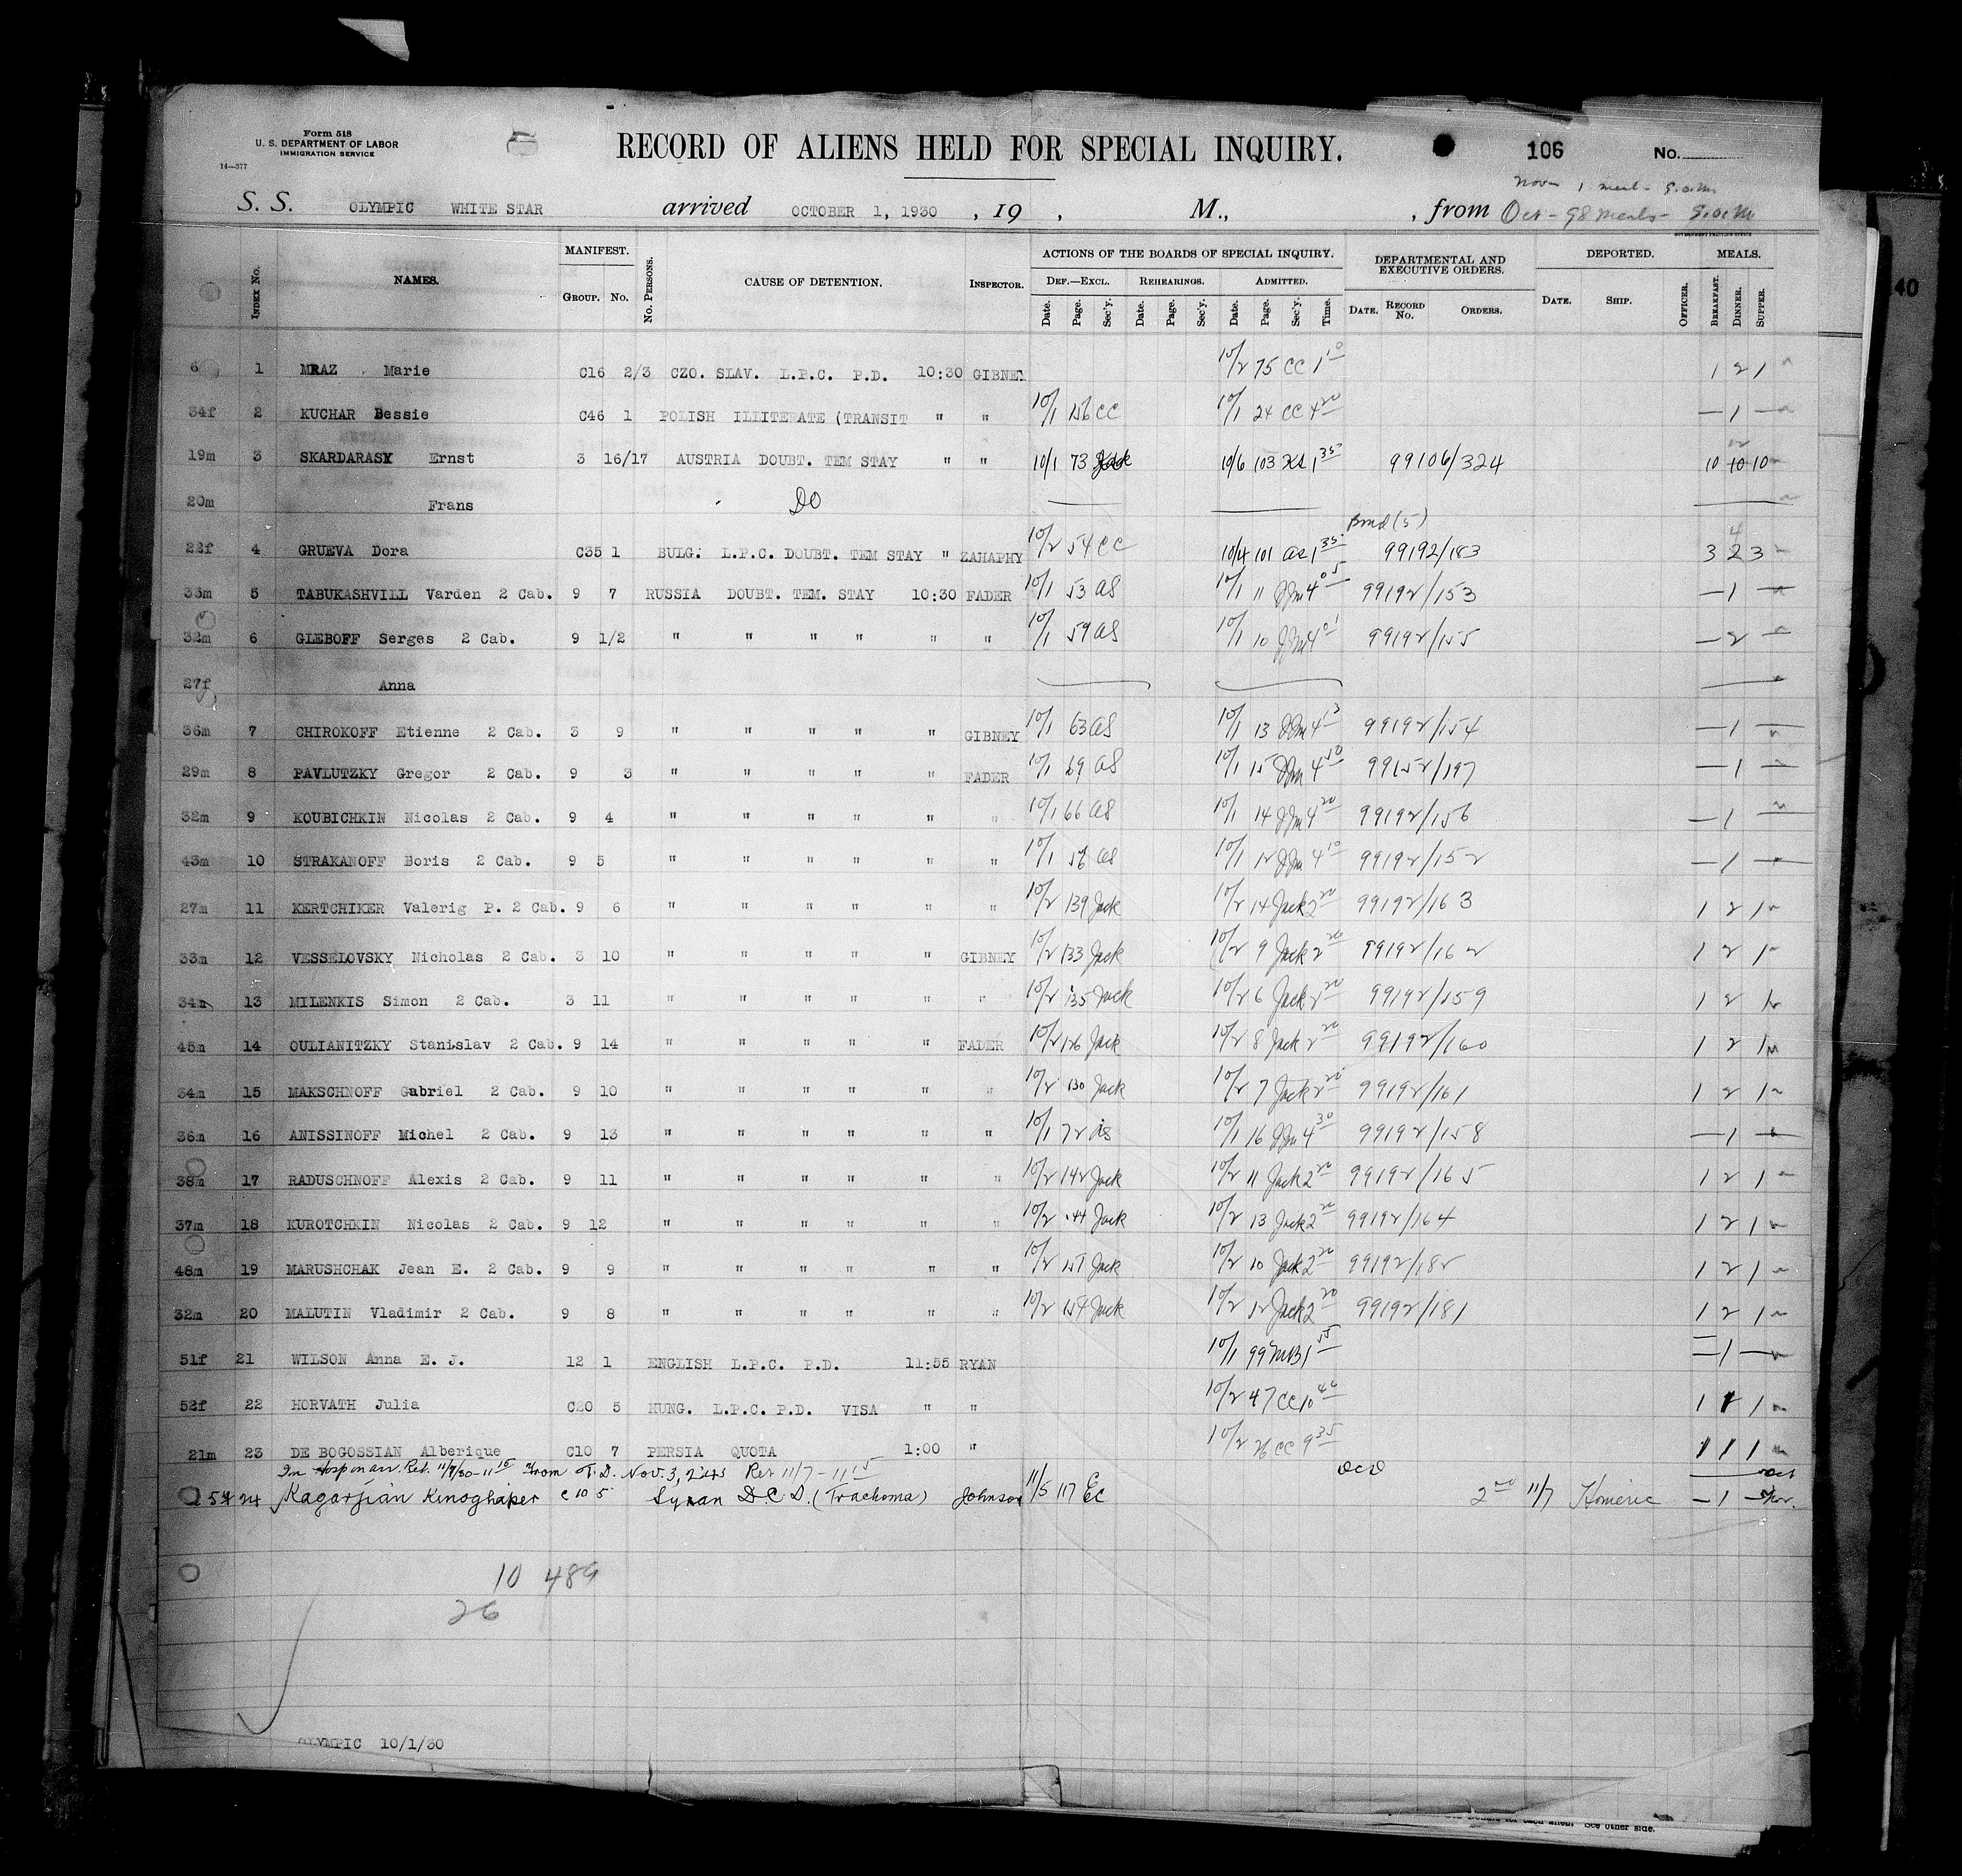 Form 518
U. S. DEPARTMENT OF LABOR
IMMIGRATION SERVICE
14—377
RECORD OF ALIENS HELD FOR SPECIAL INQUIRY.
106 No.
Nov 1 meal
S. S. OLYMPIC WHITE STAR arrived OCTOBER 1, 1930 , 19 , M., , from Oct - 98 meals -
INDEX No. NAMES. MANIFEST. GROUP. No. No. PERSONS. CAUSE OF DETENTION. INSPECTOR. ACTIONS OF THE BOARDS OF SPECIAL INQUIRY. DEF.—EXCL. REHEARINGS. ADMITTED. DEPARTMENTAL AND EXECUTIVE ORDERS. DEPORTED. MEALS.
Date. Page. Sec'y. Date. Page. Sec'y. Date. Page. Sec'y. Time. DATE. RECORD No. ORDERS. DATE. SHIP. OFFICER. BREAKFAST. DINNER. SUPPER.
6 1 MRAZ Marie C16 2/3 CZO. SLAV. L.P.C. P.D. 10:30 GIBNEY 10/2 75 CC 1 10 1 2 1
34f 2 KUCHAR Bessie C46 1 POLISH ILLITERATE (TRANSIT " " 10/1 156 CC 10/1 24 CC 4 20 — 1 —
19m 3 SKARDARASY Ernst 3 16/17 AUSTRIA DOUBT. TEM STAY " " 10/1 73 Jack 10/6 103 1 35 99106/324 10 10 10
20m Frans DO
Bond (5)
22f 4 GRUEVA Dora C35 1 BULG. L.P.C. DOUBT. TEM STAY " ZAHAPHY 10/2 54 CC 10/4 101 AS 1 35 99192/183 3 2 3
33m 5 TABUKASHVILL Varden 2 Cab. 9 7 RUSSIA DOUBT. TEM. STAY 10:30 FADER 10/1 53 AS 10/1 11 JJM 4 05 99192/153 — 1 —
32m 6 GLEBOFF Serges 2 Cab. 9 1/2 " " " " " " 10/1 59 AS 10/1 10 JJM 4 01 99192/155 — 2 —
27f Anna
36m 7 CHIROKOFF Etienne 2 Cab. 3 9 " " " " " GIBNEY 10/1 63 AS 10/1 13 JJM 4 13 99192/154 — 1 —
29m 8 PAVLUTZKY Gregor 2 Cab. 9 3 " " " " " FADER 10/1 69 AS 10/1 15 JJM 4 50 99152/197 — 1 —
32m 9 KOUBICHKIN Nicolas 2 Cab. 9 4 " " " " " " 10/1 66 AS 10/1 14 JJM 4 20 99192/156 — 1 —
43m 10 STRAKANOFF Boris 2 Cab. 9 5 " " " " " " 10/1 56 AS 10/1 12 JJM 4 10 99192/152 — 1 —
27m 11 KERTCHIKER Valerig P. 2 Cab. 9 6 " " " " " " 10/2 139 Jack 10/2 14 Jack 2 20 99192/163 1 2 1
33m 12 VESSELOVSKY Nicholas 2 Cab. 3 10 " " " " " GIBNEY 10/2 133 Jack 10/2 9 Jack 2 20 99192/162 1 2 1
34m 13 MILENKIS Simon 2 Cab. 3 11 " " " " " " 10/2 135 Jack 10/2 6 Jack 2 20 99192/159 1 2 1
45m 14 OULIANITZKY Stanislav 2 Cab. 9 14 " " " " " FADER 10/2 126 Jack 10/2 8 Jack 2 20 99192/160 1 2 1
34m 15 MAKSCHNOFF Gabriel 2 Cab. 9 10 " " " " " " 10/2 130 Jack 10/2 7 Jack 2 20 99192/161 1 2 1
36m 16 ANISSINOFF Michel 2 Cab. 9 13 " " " " " " 10/1 72 AS 10/1 16 JJM 4 30 99192/158 — 1 —
38m 17 RADUSCHNOFF Alexis 2 Cab. 9 11 " " " " " " 10/2 142 Jack 10/2 11 Jack 2 20 99192/165 1 2 1
37m 18 KUROTCHKIN Nicolas 2 Cab. 9 12 " " " " " " 10/2 144 Jack 10/2 13 Jack 2 20 99192/164 1 2 1
48m 19 MARUSHCHAK Jean E. 2 Cab. 9 9 " " " " " " 10/2 157 Jack 10/2 10 Jack 2 20 99192/182 1 2 1
32m 20 MALUTIN Vladimir 2 Cab. 9 8 " " " " " " 10/2 154 Jack 10/2 12 Jack 2 20 99192/181 1 2 1
51f 21 WILSON Anna E. J. 12 1 ENGLISH L.P.C. P.D. 11:55 RYAN 10/1 99 MB 1 55 — 1 —
52f 22 HORVATH Julia C20 5 HUNG. L.P.C. P.D. VISA " " 10/2 47 CC 10 40 1 1 1
21m 23 DE BOGOSSIAN Alberique C10 7 PERSIA QUOTA 1:00 " 10/2 26 CC 9 35 1 1 1
In Hosp on arr. Ret. 11/7/30 - 11 15 From T.D. Nov. 3, Ret 11/7 - 11 15 DCD Oct
24 Kagarjian Kinoghaper C10 5 Syrian D.C.D. (Trachoma) Johnson 11/5 117 EC 2nd 11/7 Homeric — 1 — Nov.
10 489
26
OLYMPIC 10/1/30
See other side.
40